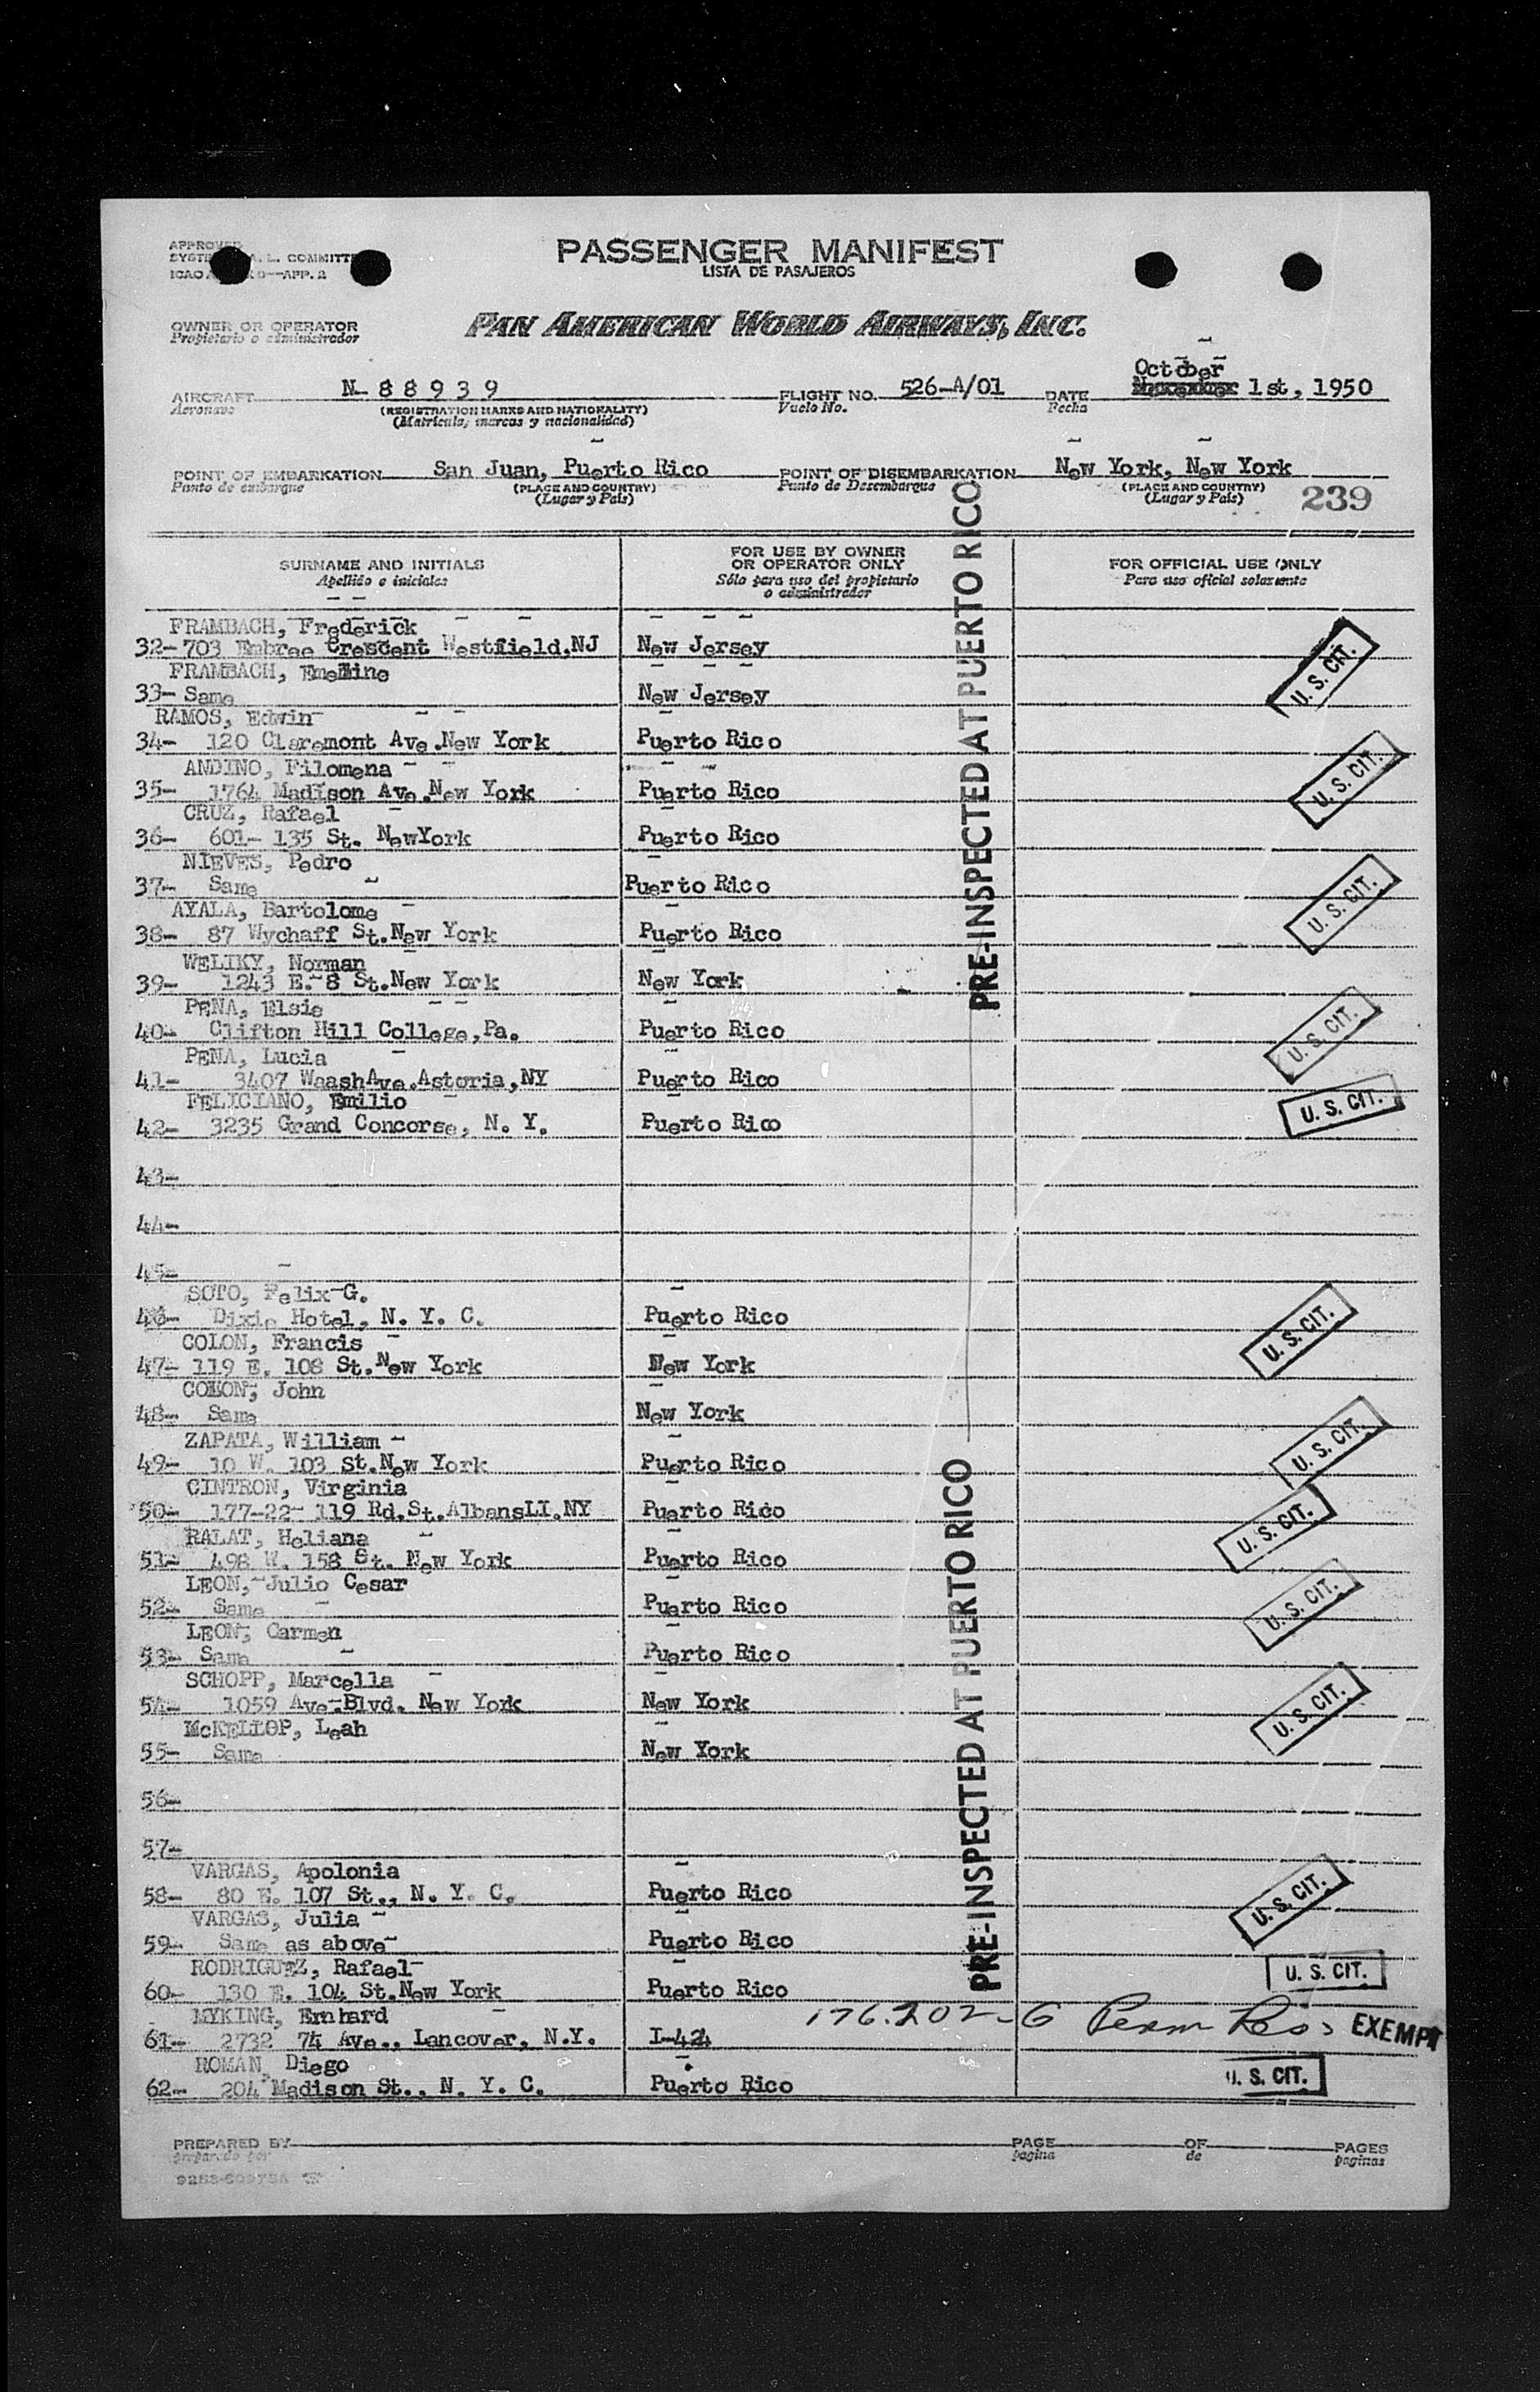 PASSENGER MANIFEST
LISTA DE PASAJEROS
PAN AMERICAN WORLD AIRWAYS, INC.
OWNER OR OPERATOR
Propietario o administrador
AIRCRAFT N-88939 FLIGHT NO. 526-A/01 DATE October 1st, 1950
Aeronave (REGISTRATION MARKS AND NATIONALITY) Vuelo No. Fecha
(Matricula, marcas y nacionalidad)
POINT OF EMBARKATION San Juan, Puerto Rico POINT OF DISEMBARKATION New York, New York
Punto de embarque (PLACE AND COUNTRY) Punto de Desembarque (PLACE AND COUNTRY)
(Lugar y País) (Lugar y País) 239
SURNAME AND INITIALS FOR USE BY OWNER OR OPERATOR ONLY FOR OFFICIAL USE ONLY
Apellido e iniciales Sólo para uso del propietario o administrador Para uso oficial solamente
PRE-INSPECTED AT PUERTO RICO
FRAMBACH, Frederick
32- 703 Embree Crescent Westfield.NJ New Jersey U. S. CIT.
FRAMBACH,
33- Same New Jersey
RAMOS, Edwin
34- 120 Claremont Ave.New York Puerto Rico
ANDINO, Filomena
35- 1764 Madison Ave.New York Puerto Rico U. S. CIT.
CRUZ, Rafael
36- 601- 135 St. NewYork Puerto Rico
NIEVES, Pedro
37- Same Puerto Rico
AYALA, Bartolome
38- 87 Wychaff St.New York Puerto Rico U. S. CIT.
WELIKY, Norman
39- 1243 E. 8 St.New York New York
PENA, Elsie
40- Clifton Hill College,Pa. Puerto Rico U. S. CIT.
PENA, Lucia
41- 3407 WaashAve.Astoria,NY Puerto Rico
FELICIANO, Emilio U. S. CIT.
42- 3235 Grand Concorse, N. Y. Puerto Rico
43-
44-
45-
SOTO, Felix G.
46- Dixie Hotel, N. Y. C. Puerto Rico U. S. CIT.
COLON, Francis
47- 119 E. 108 St.New York New York
COLON, John
48- Same New York
ZAPATA, William
49- 10 W. 103 St.New York Puerto Rico U. S. CIT.
CINTRON, Virginia
50- 177-22- 119 Rd.St.AlbansLI.NY Puerto Rico U. S. CIT.
RALAT, Heliana
51- 498 W. 158 St. New York Puerto Rico
LEON, Julio Cesar
52- Same Puerto Rico U. S. CIT.
LEON, Carmen
53- Same Puerto Rico
SCHOPP, Marcella
54- 1059 Ave.Blvd. New York New York U. S. CIT.
McKELLOP, Leah
55- Same New York
PRE-INSPECTED AT PUERTO RICO
56-
57-
VARGAS, Apolonia
58- 80 E. 107 St., N. Y. C. Puerto Rico U. S. CIT.
VARGAS, Julia
59- Same as above Puerto Rico
RODRIGUEZ, Rafael
60- 130 E. 104 St.New York Puerto Rico U. S. CIT.
MYKING, Enhard 176.202-G Perm Res EXEMPT
61- 2732 74 Ave., Lancover, N.Y. I-424
ROMAN, Diego
62- 204 Madison St., N. Y. C. Puerto Rico U. S. CIT.
PREPARED BY PAGE OF PAGES
preparado por pagina de paginas